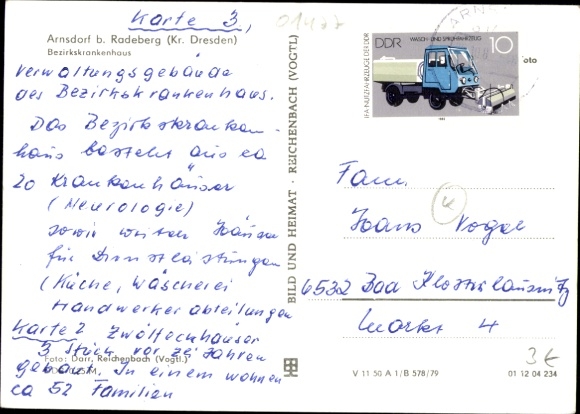 Karte 3,
01477
Arnsdorf b. Radeberg (Kr. Dresden)
Bezirkskrankenhaus
Verwaltungsgebäude
des Bezirkskrankenhaus.
Das Bezirkskranken-
haus besteht aus ca
20 Krankenhäuser
(Neurologie)
sowie weiten Häuser
für Dienstleistungen
(Küche, Wäscherei
Handwerkerabteilungen
Karte 2 Zwölfeckhäuser
3 Stück vor 20 Jahren
gebaut. In einem wohnen
ca 52 Familien
Foto: Darr, Reichenbach (Vogtl.)
BILD UND HEIMAT · REICHENBACH (VOGTL)
DDR
WASCH- UND SPRÜHFAHRZEUG
10
IFA-NUTZFAHRZEUGE DER DDR
ARNS
oto
Fam.
Hans Vogel
K
6532 Bad Klosterlausnitz
Markt 4
3€
V 11 50 A 1/B 578/79
01 12 04 234